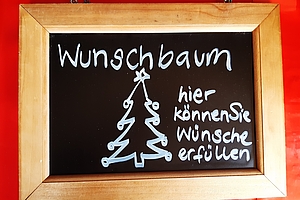 Wunschbaum
hier
können Sie
Wünsche
erfüllen